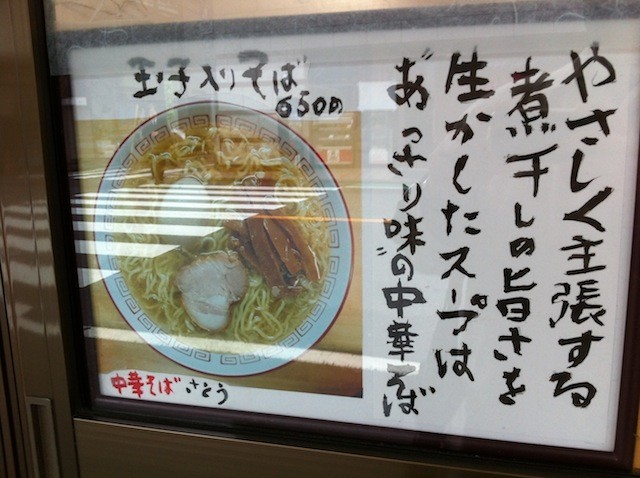 やさしく主張する
煮干しの旨さを
生かしたスープは
あっさり味の中華そば
玉子入りそば
650円
中華そば さとう